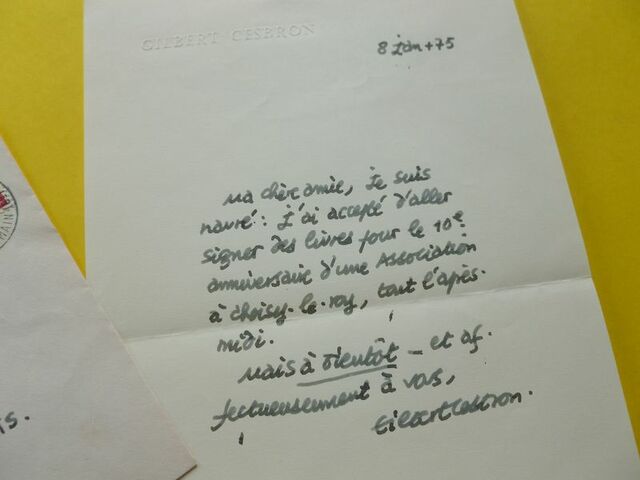 GILBERT CESBRON
8 jan + 75
Ma chère amie, je suis
navré : j'ai accepté d'aller
signer des livres pour le 10e
anniversaire d'une Association
à Choisy-le-roy, tout l'après-
midi.
Mais à bientôt – et af-
fectueusement à vous,
Gilbert Cesbron.
s.